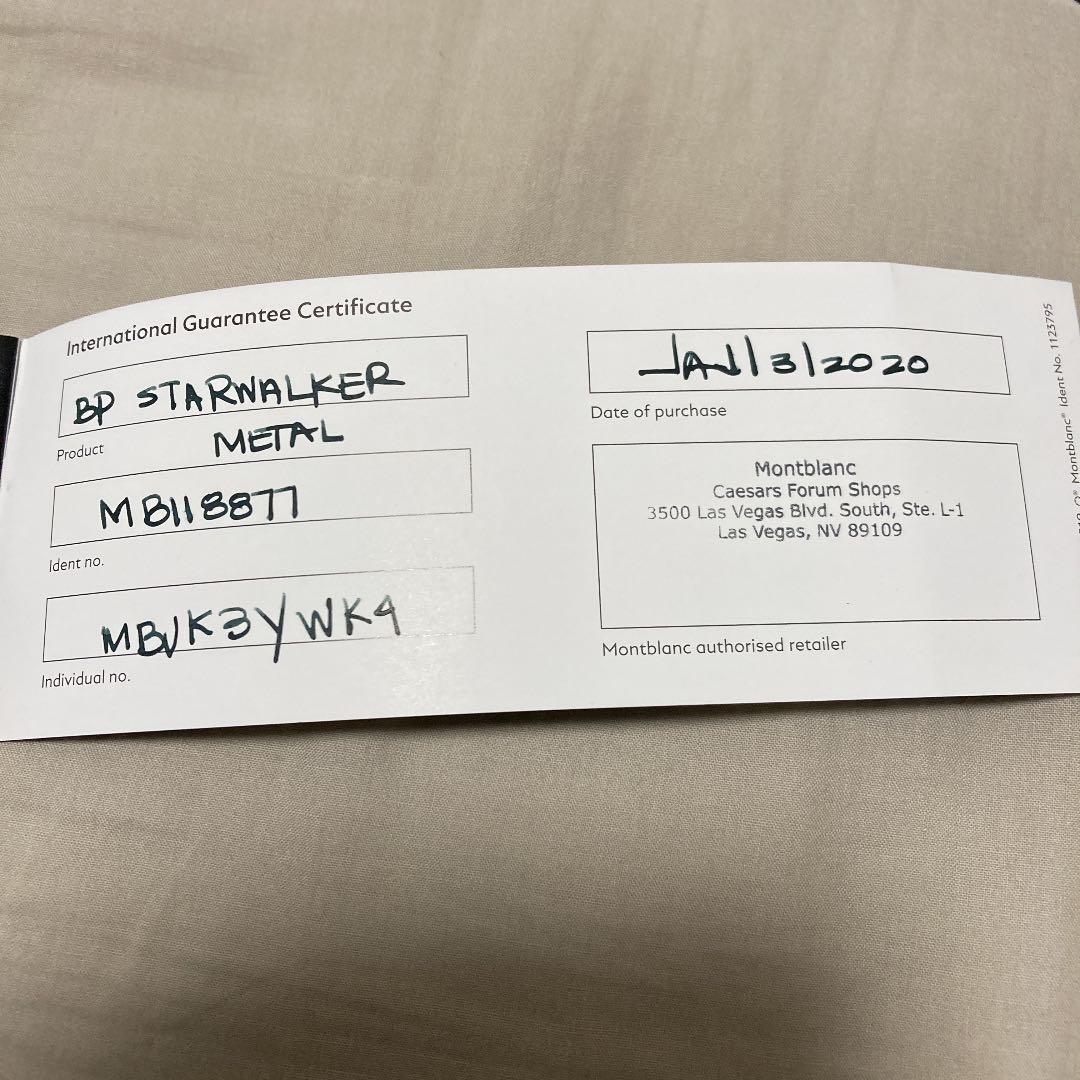 International Guarantee Certificate
BP STARWALKER
METAL
Product
MB118877
Ident no.
MBVK3YWK4
Individual no.
JAN/3/2020
Date of purchase
Montblanc
Caesars Forum Shops
3500 Las Vegas Blvd. South, Ste. L-1
Las Vegas, NV 89109
Montblanc authorised retailer
Montblanc® Ident No. 1123795